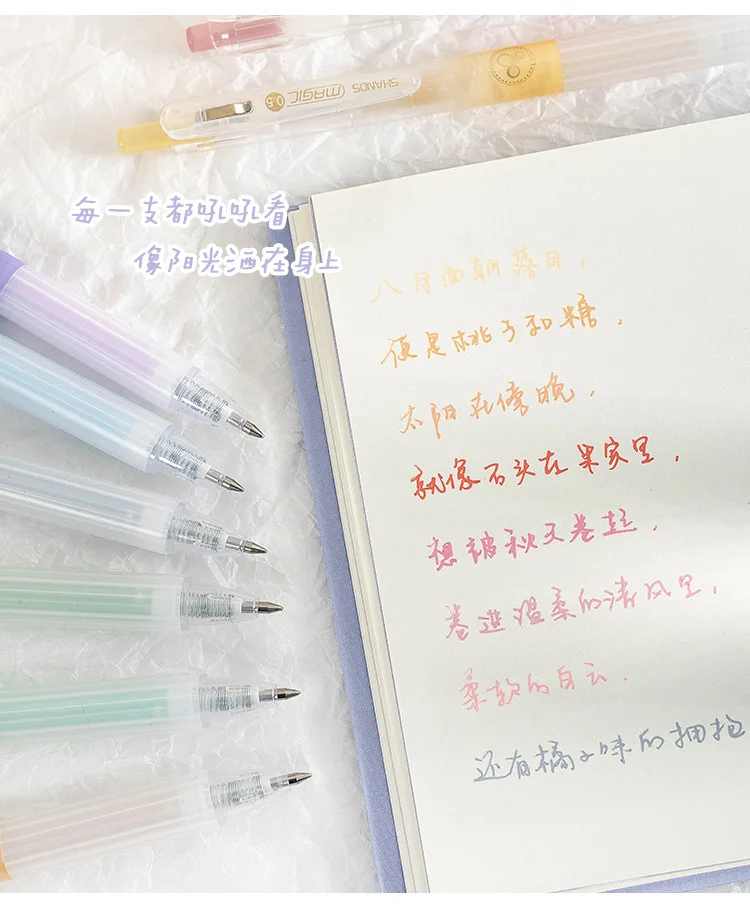 SHANDS MAGIC 0.5
每一支都吼吼看
像阳光洒在身上
八月面朝落日，
便是桃子和糖，
太阳在傍晚，
就像石头在果家里，
想被秋天卷起，
卷进温柔的清风里，
柔软的白云，
还有橘子味的拥抱